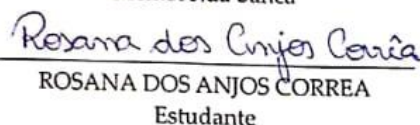 Rosana dos Anjos Corrêa
ROSANA DOS ANJOS CORREA
Estudante